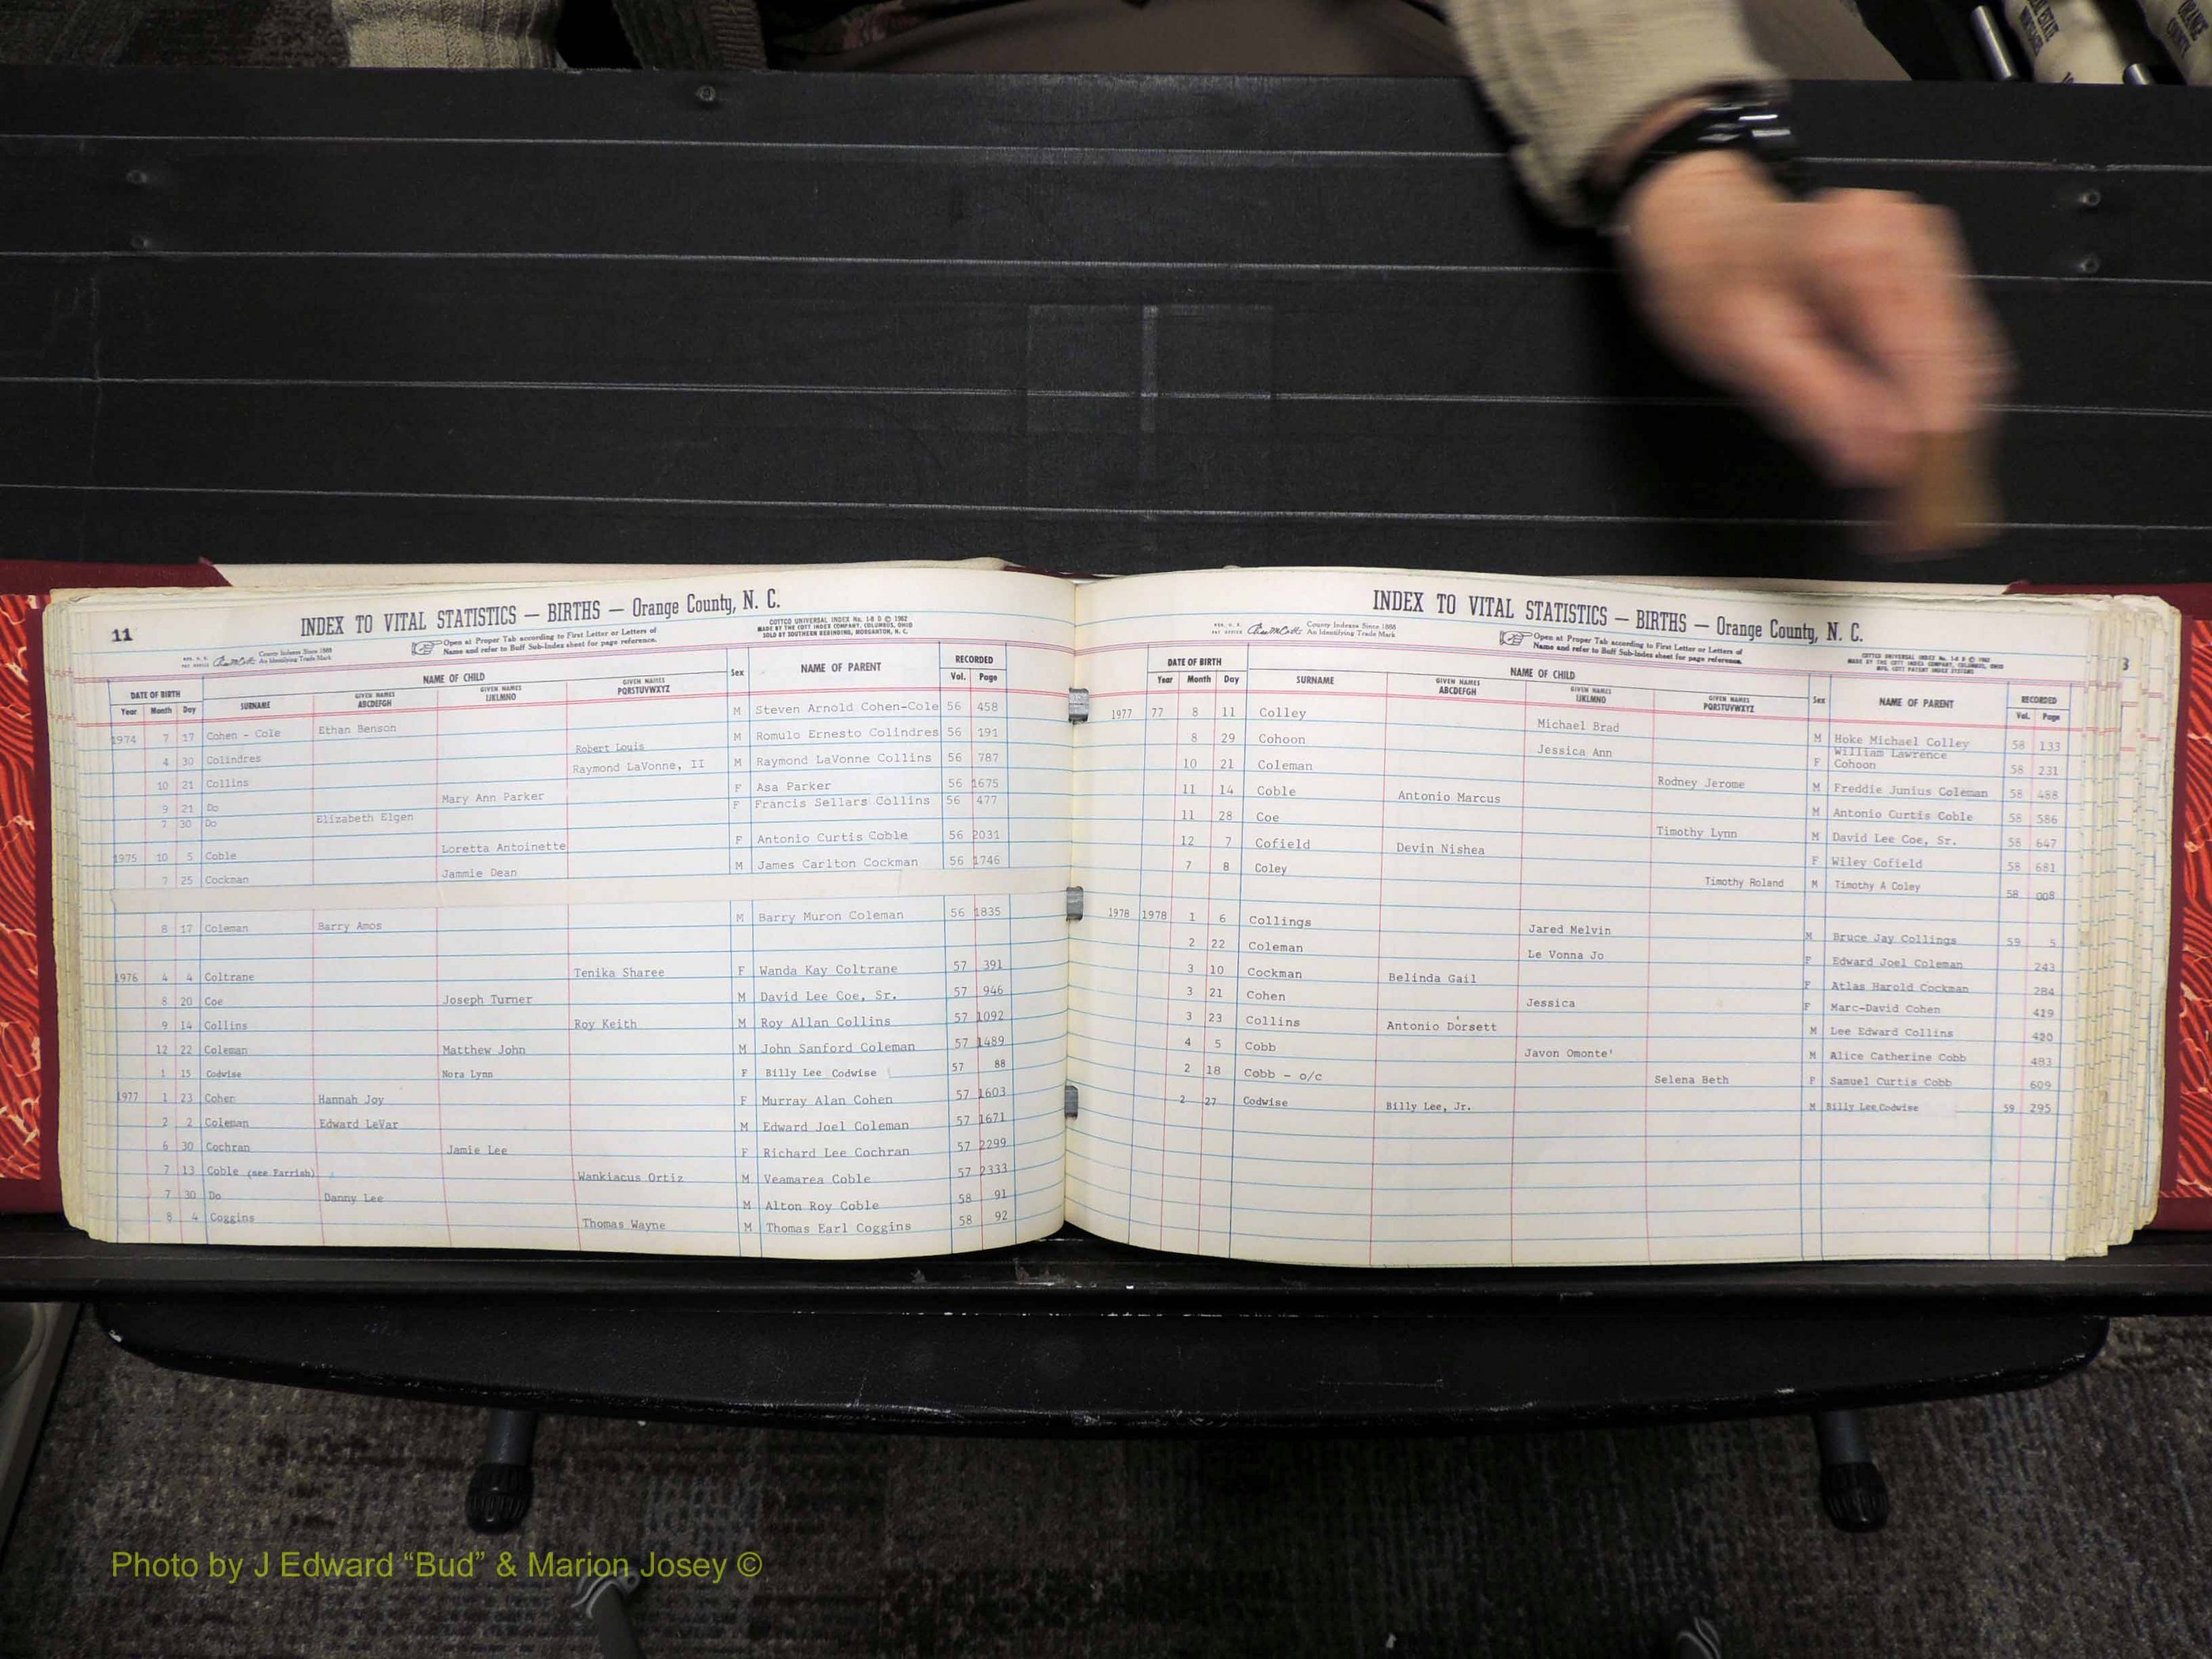 11
INDEX TO VITAL STATISTICS — BIRTHS — Orange County, N. C.
County Indexes Since 1888
An Identifying Trade Mark
Open at Proper Tab according to First Letter or Letters of
Name and refer to Buff Sub-Index sheet for page reference.
COTTCO UNIVERSAL INDEX No. 1-B D © 1962
MADE BY THE COTT INDEX COMPANY, COLUMBUS, OHIO
SOLD BY SOUTHERN REBINDING, MORGANTON, N. C.
DATE OF BIRTH NAME OF CHILD Sex NAME OF PARENT RECORDED
Year Month Day SURNAME GIVEN NAMES ABCDEFGH GIVEN NAMES IJKLMNO GIVEN NAMES PQRSTUVWXYZ Vol. Page
1974 7 17 Cohen - Cole Ethan Benson M Steven Arnold Cohen-Cole 56 458
4 30 Colindres Robert Louis M Romulo Ernesto Colindres 56 191
10 21 Collins Raymond LaVonne, II M Raymond LaVonne Collins 56 787
9 21 Do Mary Ann Parker F Asa Parker 56 1675
7 30 Do Elizabeth Elgen F Francis Sellars Collins 56 477
1975 10 5 Coble Loretta Antoinette F Antonio Curtis Coble 56 2031
7 25 Cockman Jammie Dean M James Carlton Cockman 56 1746
8 17 Coleman Barry Amos M Barry Muron Coleman 56 1835
1976 4 4 Coltrane Tenika Sharee F Wanda Kay Coltrane 57 391
8 20 Coe Joseph Turner M David Lee Coe, Sr. 57 946
9 14 Collins Roy Keith M Roy Allan Collins 57 1092
12 22 Coleman Matthew John M John Sanford Coleman 57 1489
1 15 Codwise Nora Lynn F Billy Lee Codwise 57 88
1977 1 23 Cohen Hannah Joy F Murray Alan Cohen 57 1603
2 2 Coleman Edward LeVar M Edward Joel Coleman 57 1671
6 30 Cochran Jamie Lee F Richard Lee Cochran 57 2299
7 13 Coble (see Farrish) Wankiacus Ortiz M Veamarea Coble 57 2333
7 30 Do Danny Lee M Alton Roy Coble 58 91
8 4 Coggins Thomas Wayne M Thomas Earl Coggins 58 92
INDEX TO VITAL STATISTICS — BIRTHS — Orange County, N. C.
County Indexes Since 1888
An Identifying Trade Mark
Open at Proper Tab according to First Letter or Letters of
Name and refer to Buff Sub-Index sheet for page reference.
COTTCO UNIVERSAL INDEX No. 1-B D © 1962
MADE BY THE COTT INDEX COMPANY, COLUMBUS, OHIO
DATE OF BIRTH NAME OF CHILD Sex NAME OF PARENT RECORDED
Year Month Day SURNAME GIVEN NAMES ABCDEFGH GIVEN NAMES IJKLMNO GIVEN NAMES PQRSTUVWXYZ Vol. Page
1977 77 8 11 Colley Michael Brad M Hoke Michael Colley 58 133
8 29 Cohoon Jessica Ann F William Lawrence Cohoon 58 231
10 21 Coleman Rodney Jerome M Freddie Junius Coleman 58 488
11 14 Coble Antonio Marcus M Antonio Curtis Coble 58 586
11 28 Coe Timothy Lynn M David Lee Coe, Sr. 58 647
12 7 Cofield Devin Nishea F Wiley Cofield 58 681
7 8 Coley Timothy Roland M Timothy A Coley 58 008
1978 1978 1 6 Collings Jared Melvin M Bruce Jay Collings 59 5
2 22 Coleman Le Vonna Jo F Edward Joel Coleman 243
3 10 Cockman Belinda Gail F Atlas Harold Cockman 284
3 21 Cohen Jessica F Marc-David Cohen 419
3 23 Collins Antonio Dorsett M Lee Edward Collins 420
4 5 Cobb Javon Omonte' M Alice Catherine Cobb 483
2 18 Cobb - o/c Selena Beth F Samuel Curtis Cobb 609
2 27 Codwise Billy Lee, Jr. M Billy Lee Codwise 59 295
Photo by J Edward “Bud” & Marion Josey ©